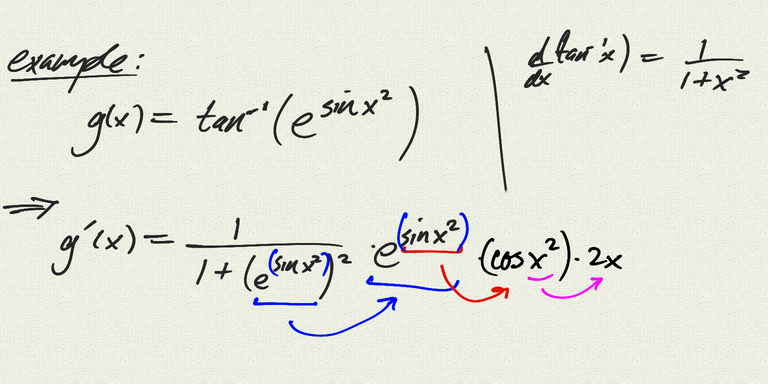 example:
g(x) = tan⁻¹(e^{sin x²})
d/dx (tan⁻¹x) = 1/(1+x²)
⇒ g′(x) = 1/(1+(e^{(sin x²)})²) · e^{(sin x²)} · (cos x²) · 2x